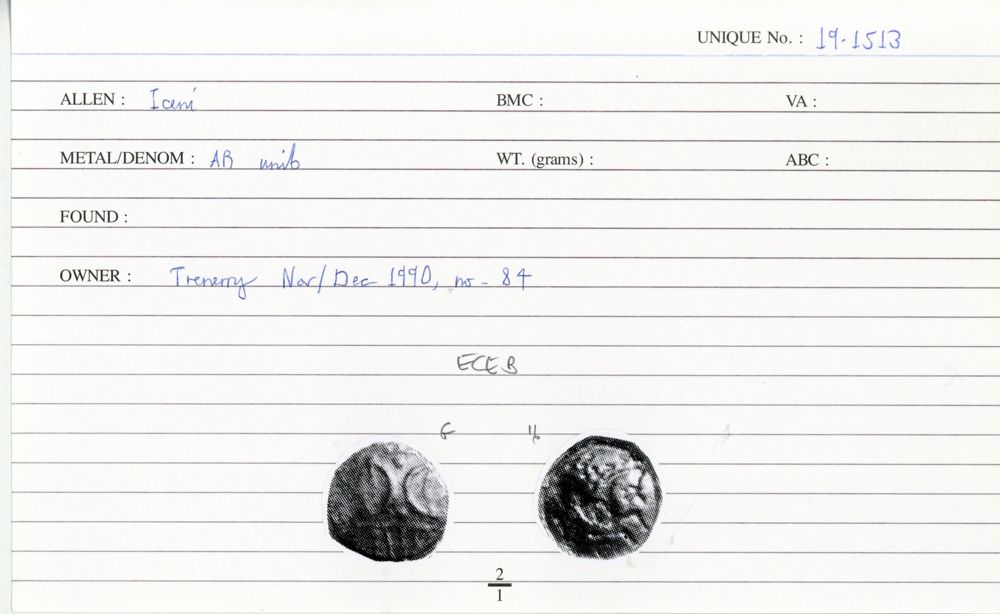 UNIQUE No. : 19-1513
ALLEN : Iceni BMC : VA :
METAL/DENOM : AR unit WT. (grams) : ABC :
FOUND :
OWNER : Trenerry Nov/Dec 1990, no. 84
ECE B
2
1